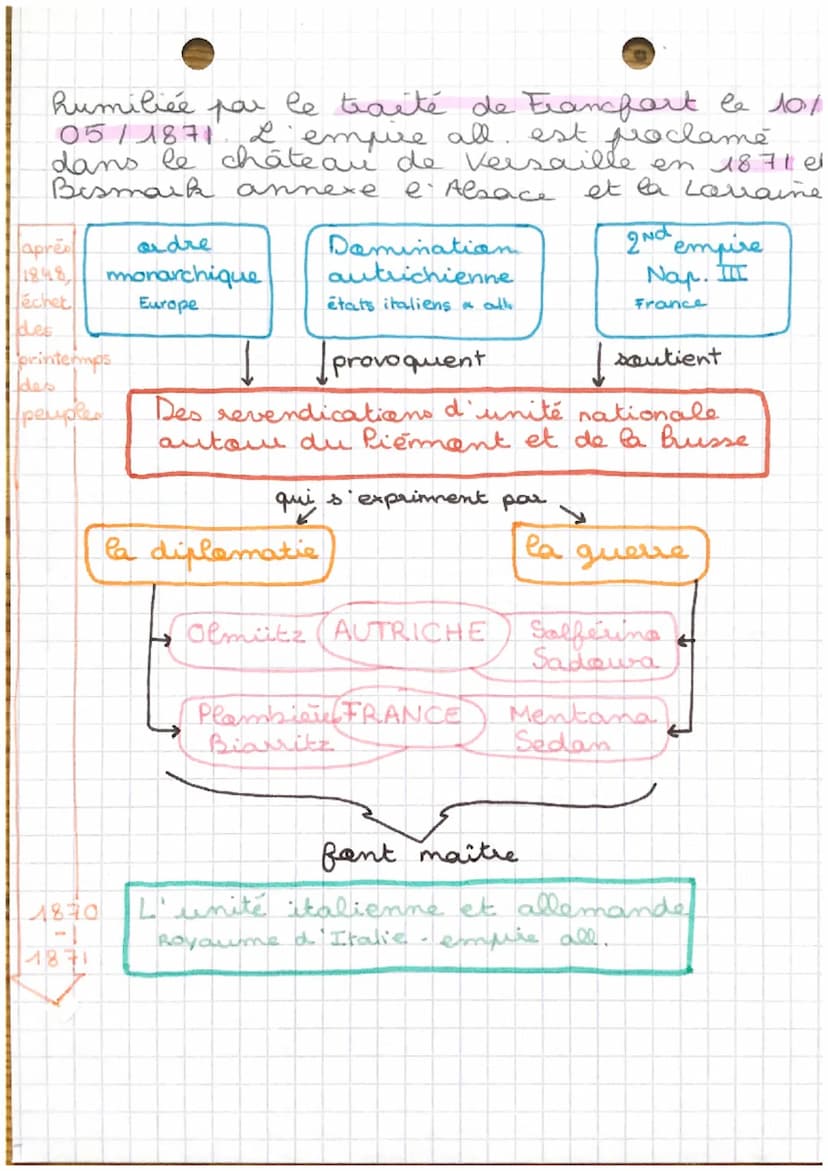 humiliée par le traité de Francfort le 10/
05/1871. L'empire all. est proclamé
dans le château de Versaille en 1871 et
Bismark annexe l'Alsace et la Lorraine
après
1848,
échet
des
printemps
des
peuples
ordre
monarchique
Europe
Domination
autrichienne
états italiens & all.
2ND empire
Nap. III
France
provoquent
soutient
Des revendications d'unité nationale
autour du Piémont et de la Prusse
qui s'expriment par
la diplomatie
la guerre
Olmütz
AUTRICHE
Solférino
Sadowa
Plombières
Biarritz
FRANCE
Mentana
Sedan
font maître
L'unité italienne et allemande
Royaume d'Italie - empire all.
1870
-
1871